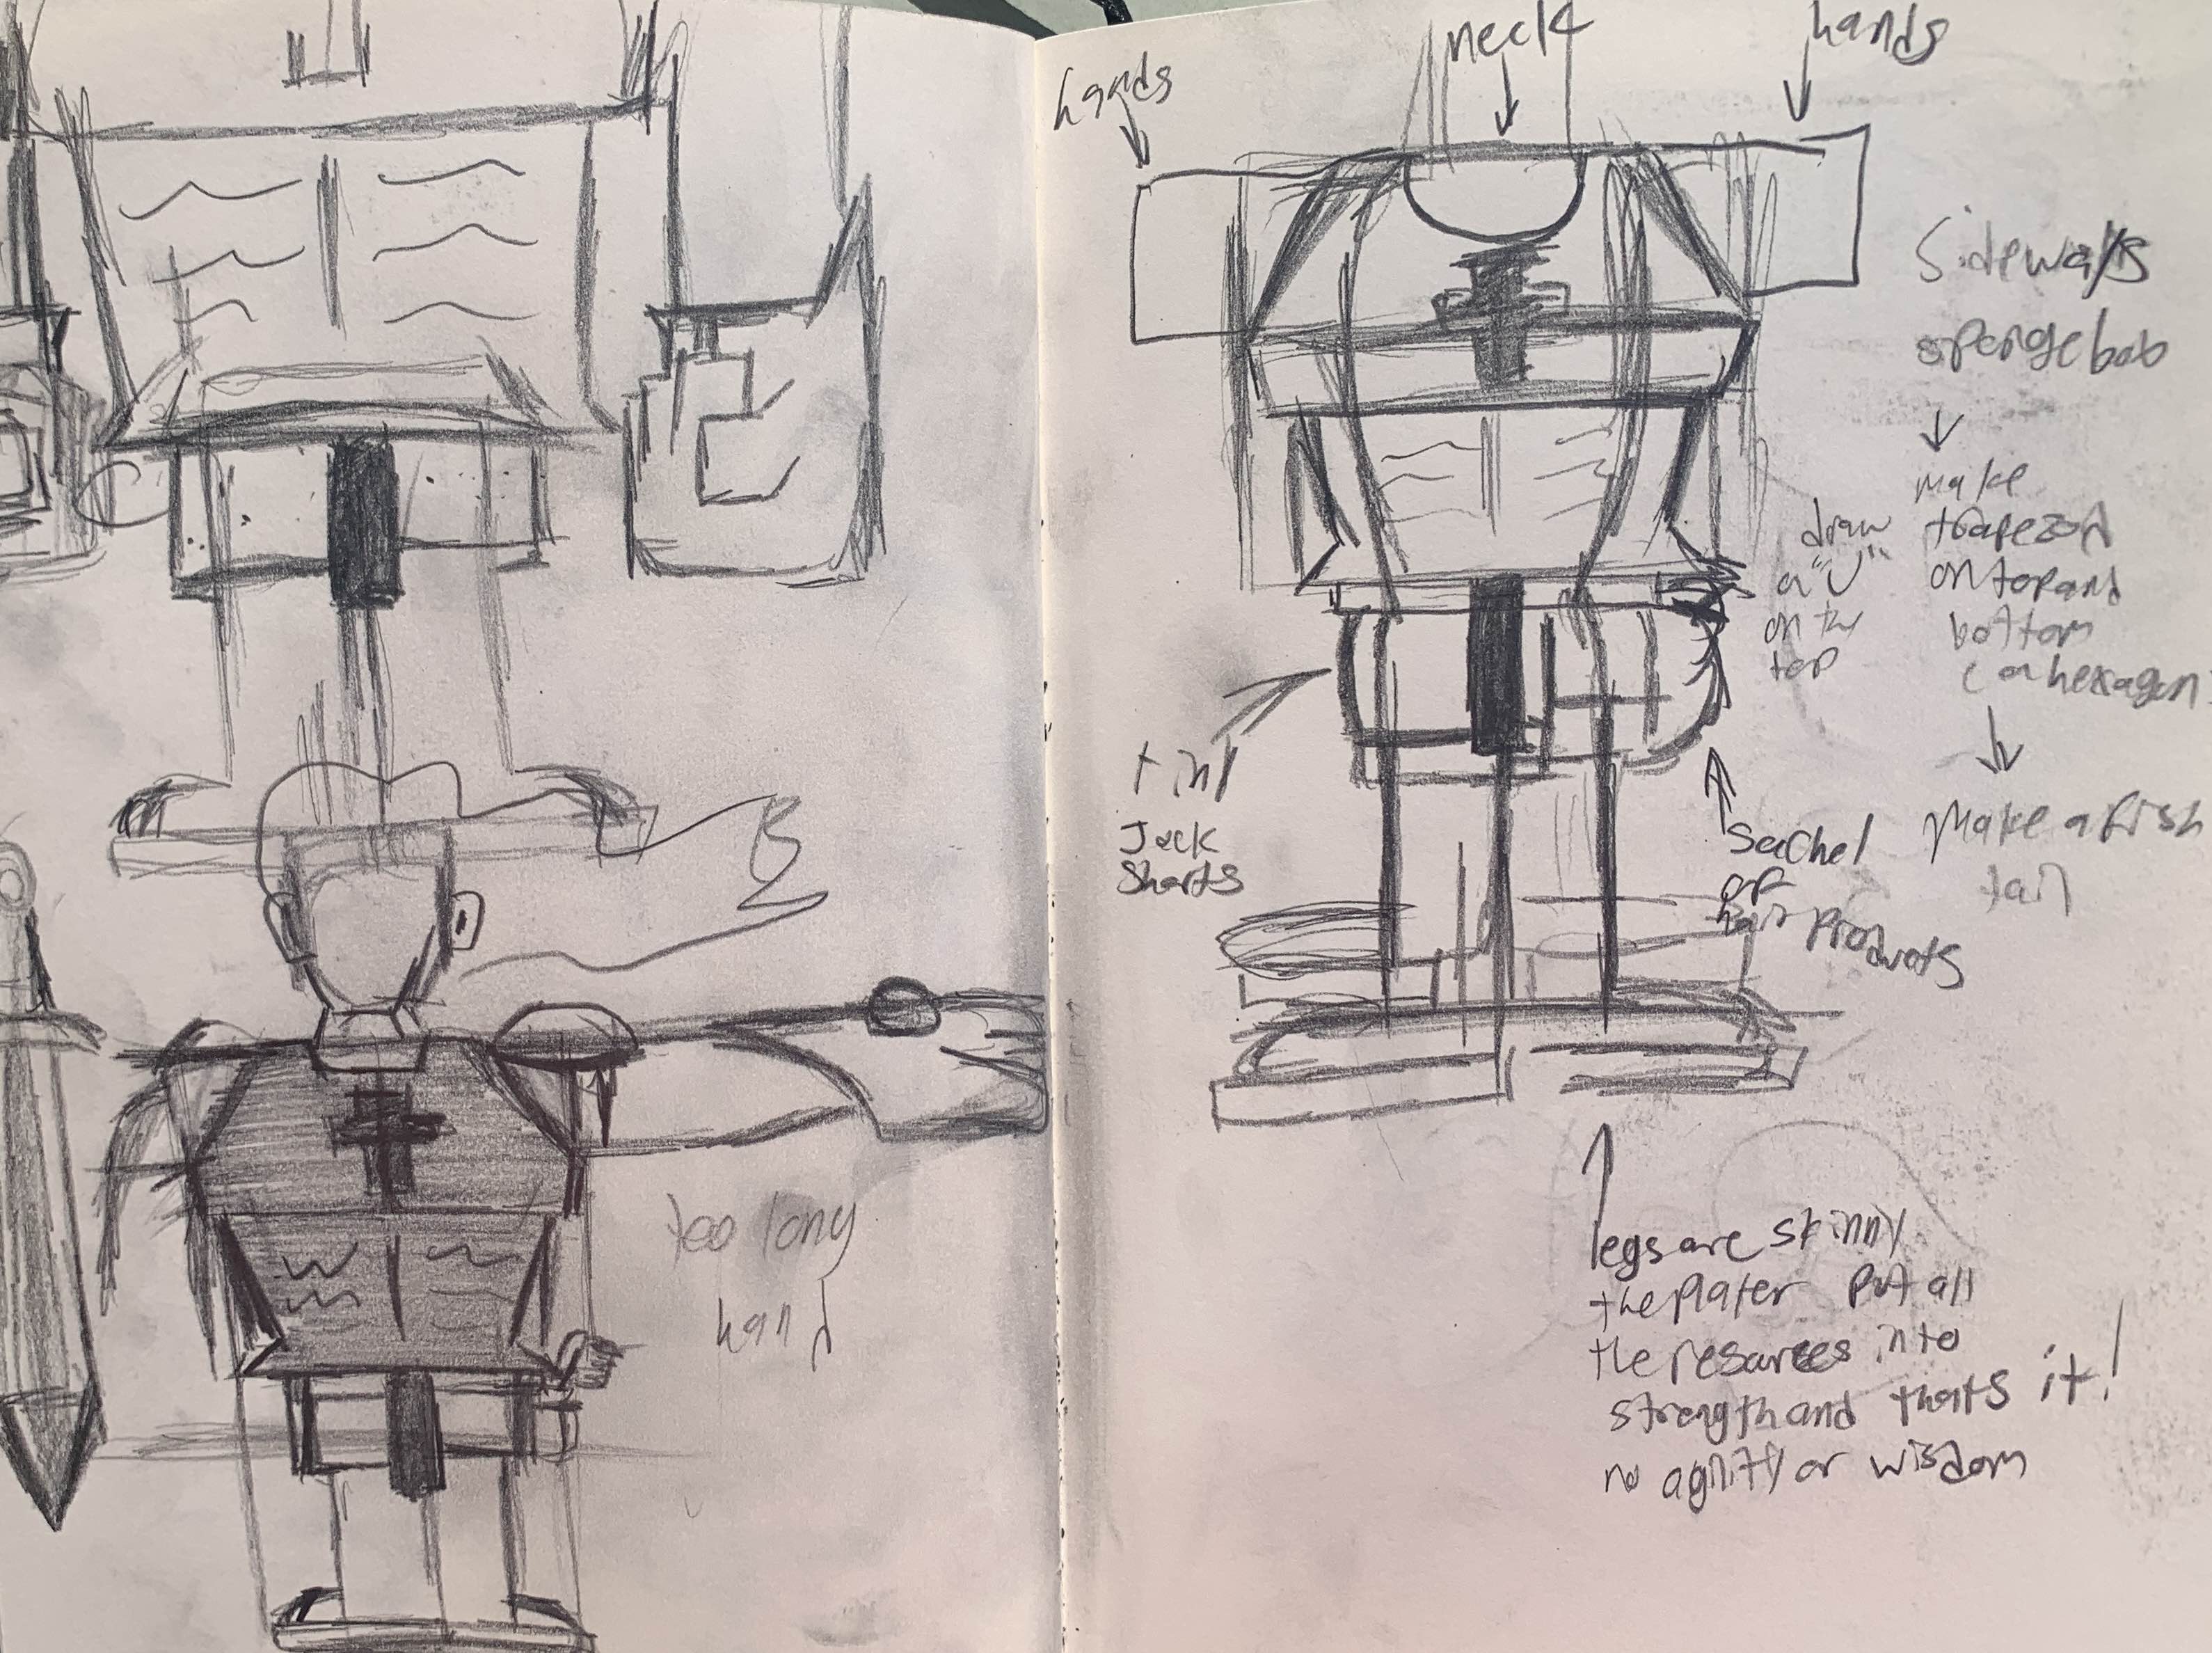 too long
hand
hands
neck
hands
Sideways
spongebob
make
trapezoid
on top and
bottom
(a hexagon
draw
a "U"
on the
top
Make a fish
tail
tiny
Jack
Shorts
Sachel
of
hair products
legs are skinny
the player put all
the resources into
strength and thats it!
no agility or wisdom